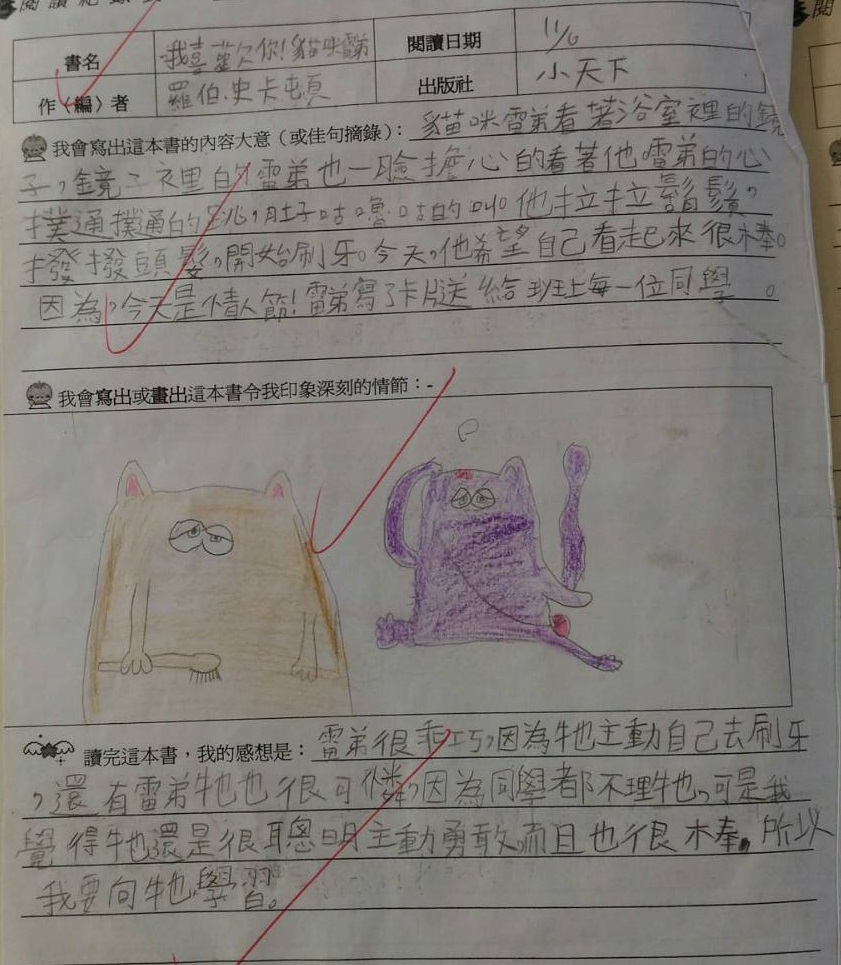 閱讀紀錄
書名 我喜歡你!貓咪雷弟 閱讀日期 11/6
作〈編〉者 羅伯.史卡頓 出版社 小天下
我會寫出這本書的內容大意（或佳句摘錄）：貓咪雷弟看著浴室裡的鏡
子,鏡子裡的雷弟也一臉擔心的看著他,雷弟的心
撲通撲通的跳,肚子咕嚕咕的叫。他拉拉鬍鬚,
撥撥頭髮,開始刷牙。今天,他希望自己看起來很棒。
因為,今天是情人節!雷弟寫了卡片送給班上每一位同學。
我會寫出或畫出這本書令我印象深刻的情節：-
讀完這本書，我的感想是：雷弟很乖巧,因為牠主動自己去刷牙
,還有雷弟牠也很可憐,因為同學都不理牠,可是我
覺得牠還是很聰明主動勇敢,而且也很棒,所以
我要向牠學習。
閱